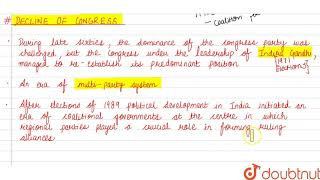 - Coalition
# DECLINE OF CONGRESS
• During late sixties, the dominance of the congress party was
challenged but the Congress under the leadership of Indira Gandhi,
managed to re-establish its predominant position (1971 Elections)
• An era of multi-party system
• After elections of 1989 political development in India initiated an
era of coalitional governments at the centre in which
regional parties played a crucial role in forming ruling
alliances
doubtnut